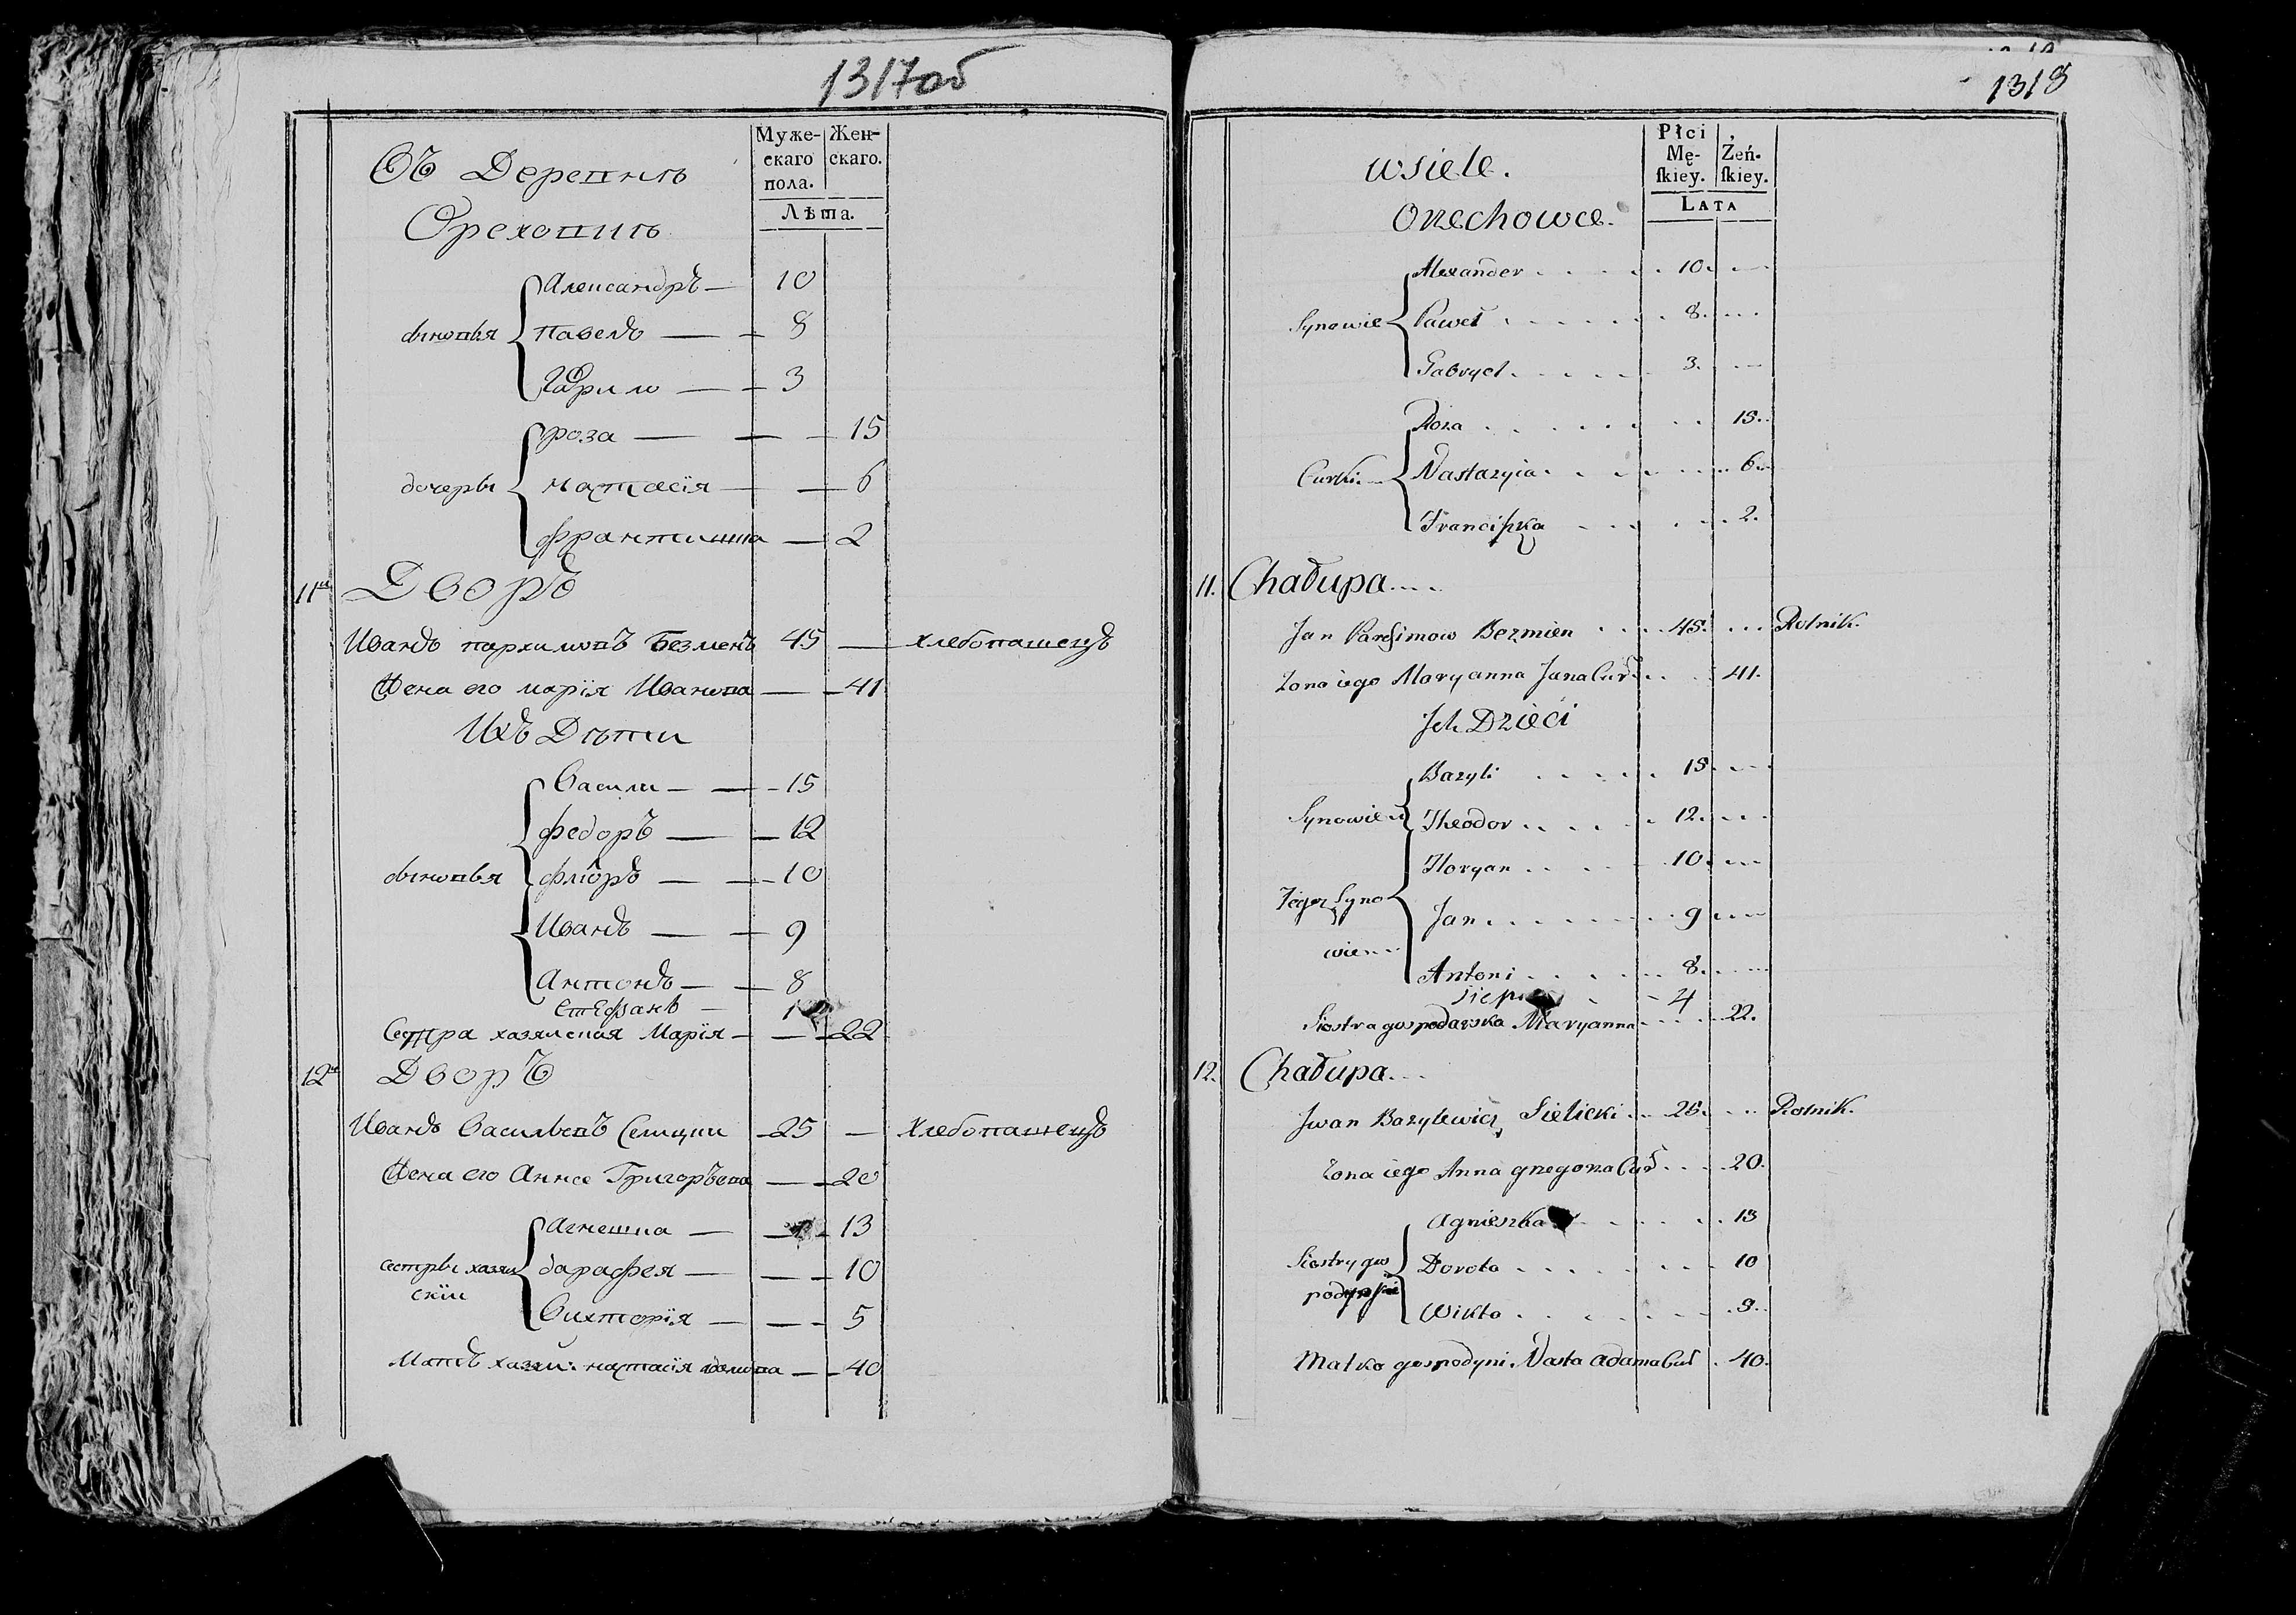 1317об
Муже-
скаго
пола.
Жен-
скаго.
Лѣта.
Въ Деревнѣ
Ореховцѣ
сыновья
Александръ — 10
Павелъ — 8
Гаврило — 3
дочеры
роза — 15
настасїя — 6
францишка — 2
11й Дворъ
Иванъ пархимовъ Безменъ 45 — хлебопашецъ
Жена его марїя Иванова — 41
Ихъ Дѣти
сыновья
Васили — 15
федоръ — 12
флїоръ — 10
Иванъ — 9
Антонъ — 8
Стефанъ —
Сестра хазяиская Марїя — 22
12й Дворъ
Иванъ Васильевъ Селицки 25 — Хлебопашецъ
Жена его Анна Григорьева — 20
сестры хазяи
скїи
Агнешка — 13
дарафея — 10
Вихторїя — 5
Мать хазяи: настасїя адамова — 40
1318
Płci
Mę-
skiey.
Żeń-
skiey.
LATA
wsiele.
Orzechowce.
Synowie
Alexander 10.
Paweł 8.
Gabryel 3.
Curki
Roza 15.
Nastazyia 6
Franciszka 2.
11. Chałupa
Jan Parchimow Bezmien 45. Rolnik.
Zona iego Maryanna Jana Cur 41.
Jch Dzieci
Synowie
Bazyli 15
Theodor 12.
Floryan 10
Tegoż Syno
wie
Jan 9
Antoni 8.
4
Siostra gospodarska Maryanna 22.
12. Chałupa
Jwan Bazylewicz Sielicki 25. Rolnik.
Zona iego Anna grzegorza Cur 20.
Siostry gos
Agnieszka 13
Dorota 10
Wikta 5.
Matka gospodyni Nasta adama Cur 40.